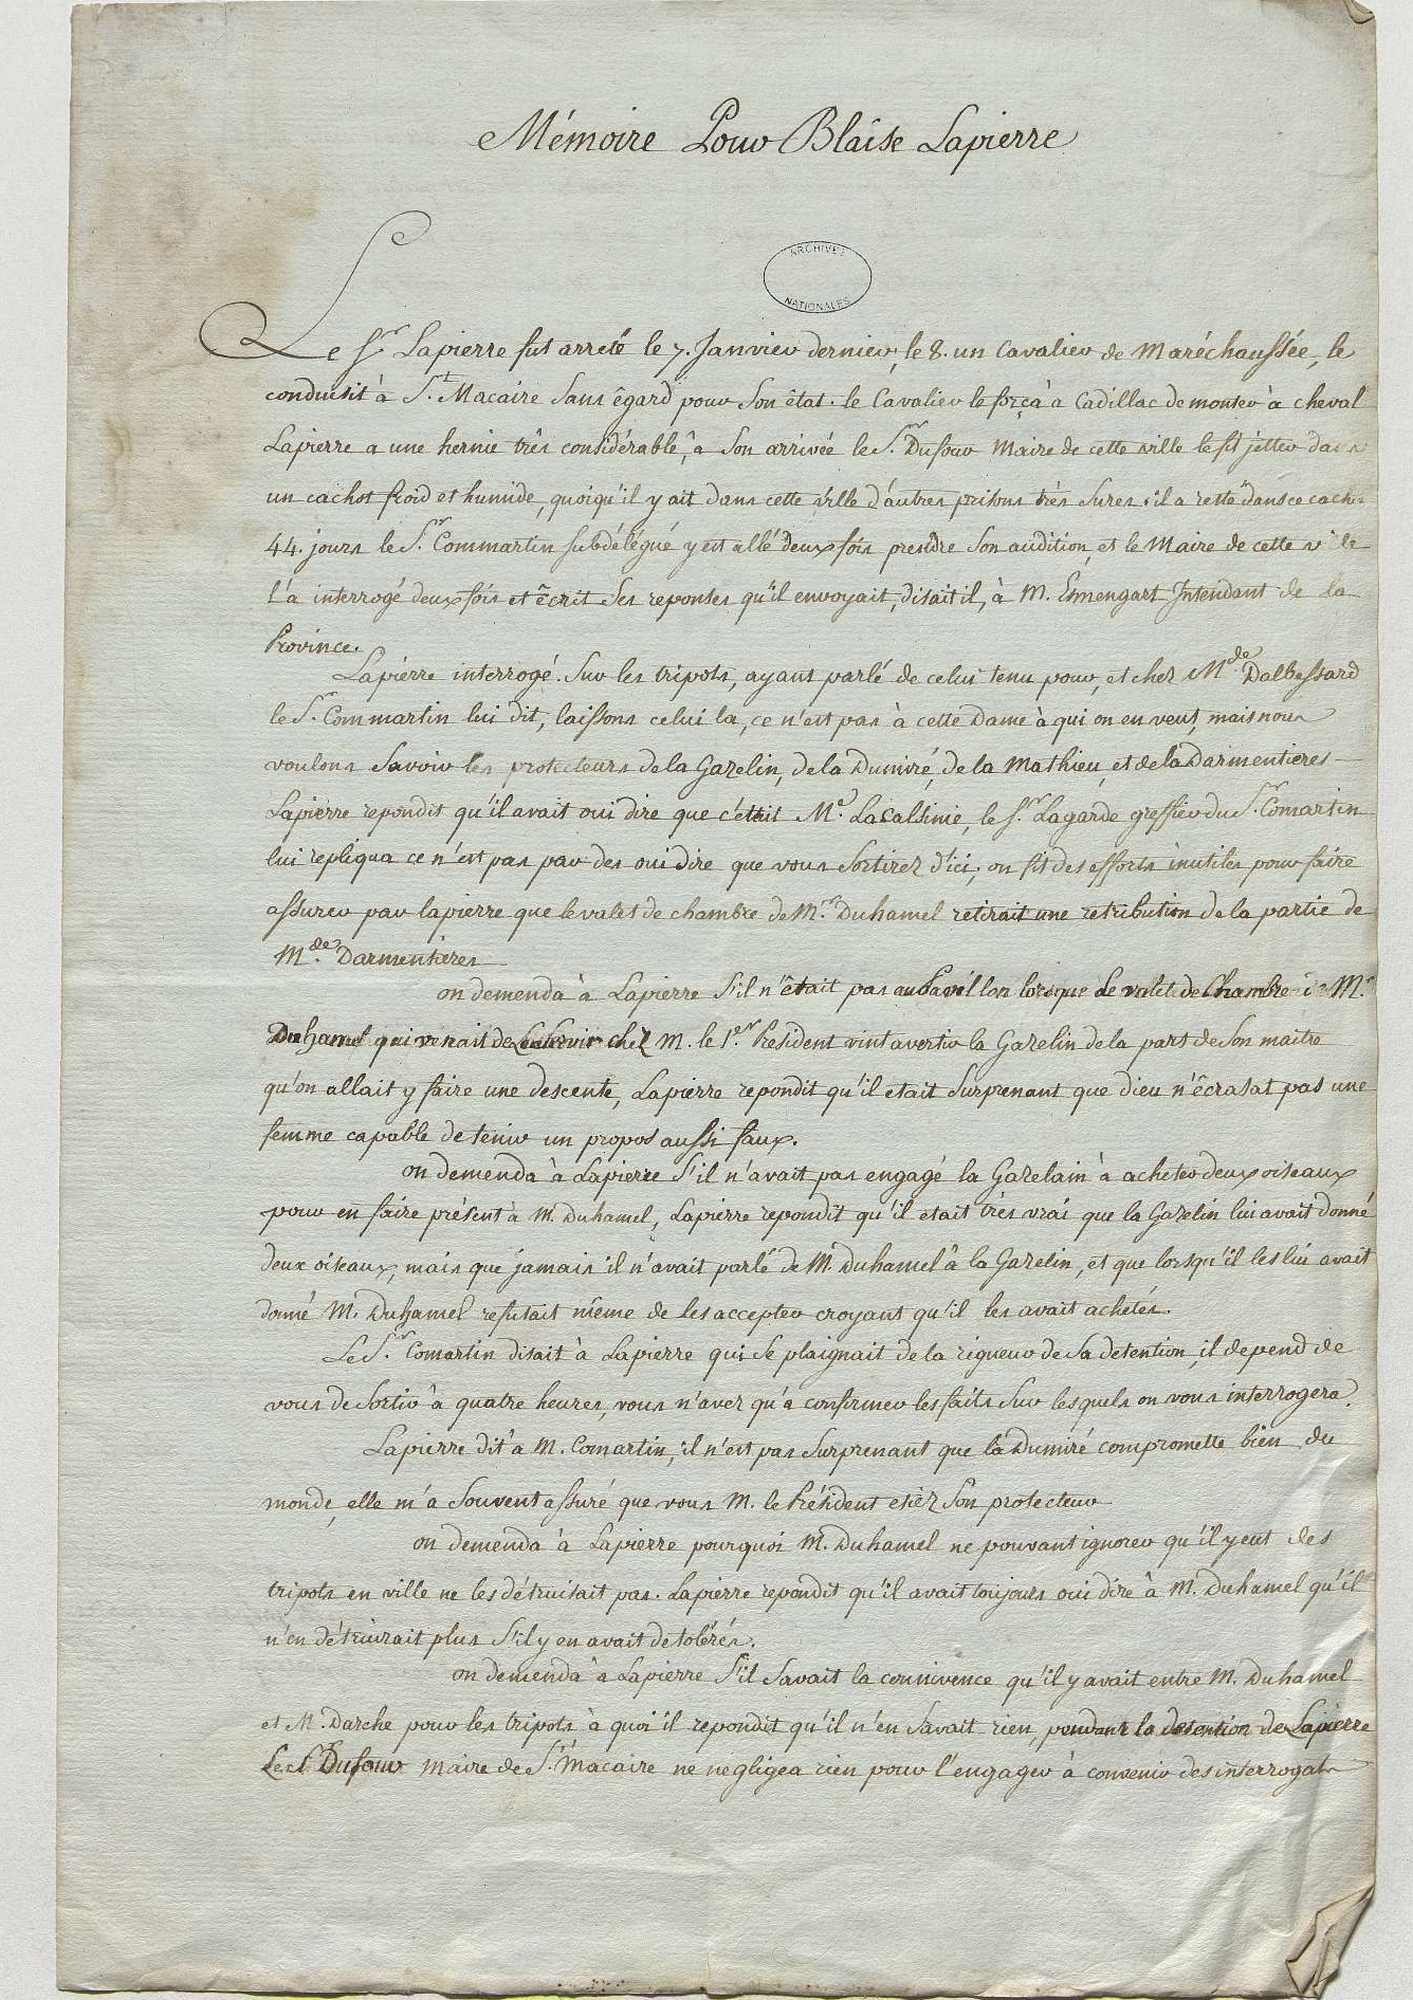 Mémoire Pour Blaîse Lapierre
ARCHIVES
NATIONALES
Le Sr. Lapierre fut arreté le 7. Janvier dernier, le 8. un Cavalier de Maréchaussée, le
conduisit à St. Macaire Sans êgard pour Son êtat. le Cavalier le força à Cadillac de monter à cheval
Lapierre a une hernie três considérable, à Son arrivée le Sr. Dufour Maire de cette ville le fit jetter dans
un cachot froid et humide, quoiqu'il y ait dans cette ville d'autres prisons très Sures. il a resté dans ce cachot
44. jours le Sr. Commartin Subdélégué y est allé deux fois prendre Son audition, et le Maire de cette ville
l'a interrogé deux fois et écrit Ses reponses qu'il envoyait, disait il, à M. Esmengart Intendant de la
Province.
Lapierre interrogé Sur les tripots, ayant parlé de celui tenu pour, et chez Mde. Dalbessard
le Sr. Commartin lui dit, laissons celui la, ce n'est pas à cette Dame à qui on en veut, mais nous
voulons Savoir les protecteurs de la Gazelin, de la Dumiré, de la Mathieu, et de la Darmentieres
Lapierre repondit qu'il avait oui dire que c'etait Me. Lacalsinie, le Sr. Lagarde greffier du Sr. Comartin
lui repliqua ce n'est pas par des oui dire que vous Sortirez d'ici, on fit des efforts inutiles pour faire
assurer par lapierre que le valet de chambre de Mr. Duhamel retirait une retribution de la partie de
Mde. Darmentieres
on demenda à Lapierre S'il n'êtait pas au Pavillon lorsque Le valet de Chambre de Mr.
Duhamel qui venait de chez M. le 1er. President vint avertir la Gazelin de la part de Son maitre
qu'on allait y faire une descente, Lapierre repondit qu'il etait Surprenant que dieu n'êcrasat pas une
femme capable de tenir un propos aussi faux.
on demenda à Lapierre S'il n'avait pas engagé la Gazelain à acheter deux oiseaux
pour en faire présent à M. Duhamel, Lapierre repondit qu'il etait très vrai que la Gazelin lui avait donné
deux oiseaux, mais que jamais il n'avait parlé de M. Duhamel à la Gazelin, et que lorsqu'il les lui avait
donné M. Duhamel refusait même de les accepter croyant qu'il les avait achetés.
Le Sr. Comartin disait à Lapierre qui Se plaignait de la rigueur de Sa detention, il depend de
vous de Sortir à quatre heures, vous n'avez qu'à confirmer les faits Sur lesquels on vous interrogera.
Lapierre dit à M. Comartin, il n'est pas Surprenant que la Dumiré compromette bien du
monde, elle m'a Souvent assuré que vous M. le Président etiez Son protecteur
on demenda à Lapierre pourquoi M. Duhamel ne pouvant ignorer qu'il y eut des
tripots en ville ne les détruisait pas. Lapierre repondit qu'il avait toujours oui dire à M. Duhamel qu'il
n'en détruirait plus S'il y en avait de tolérés.
on demenda à Lapierre S'il Savait la connivence qu'il y avait entre M. Duhamel
et M. Darche pour les tripots à quoi il repondit qu'il n'en Savait rien, pendant la detention de Lapierre
Le Sr. Dufour Maire de St. Macaire ne negligea rien pour l'engager à convenir des interrogats